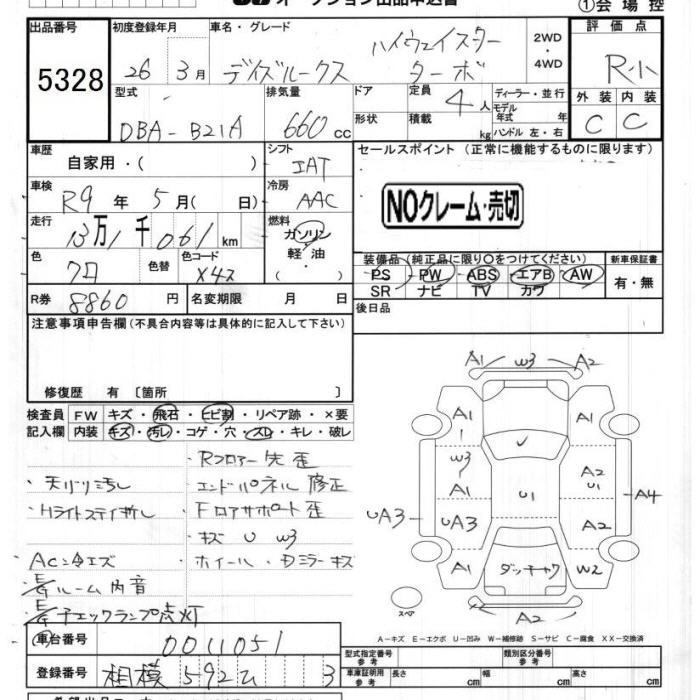 ①会場控
出品番号 初度登録年月 車名・グレード 評価点
5328 26年 3月 デイズルークス ハイウェイスター ターボ 2WD・4WD R小
型式 排気量 ドア 定員 ディーラー・並行
DBA-B21A 660cc 形状 積載 4人 kg モデル年式 年 ハンドル 左・右
外装 内装
C C
車歴 自家用・( ) シフト IAT
セールスポイント (正常に機能するものに限ります)
車検 R9年 5月( 日) 冷房 AAC
NOクレーム・売切
走行 13万1千061km 燃料 ガソリン 軽油 ( )
色 クロ 色替 色コード X42
装備品 (純正品に限り○をつけてください) 新車保証書
PS PW ABS エアB AW 有・無
SR ナビ TV カワ
R券 8860円 名変期限 月 日
後日品
注意事項申告欄 (不具合内容等は具体的に記入して下さい)
修復歴 有 〔箇所 〕
検査員 FW キズ・飛石・ヒビ割・リペア跡・×要
記入欄 内装 キズ・汚レ・コゲ・穴・スレ・キレ・破レ
・Rフロアー先歪
・天バリ汚し
・エンドパネル修正
・Hライトステイ折し
・Fロアサポート歪
・キズ U W3
ACン冷エズ
・ホイール・Dミラーキズ
ルーム内音
チェックランプ点灯
車台番号 0011051
登録番号 相模 592 3
A1 W3 A2
A1 A1
W3
A1 U1 A2 U1
A4
UA3 UA3 A2
A1 ダッチャク W2
スペア A2
A－キズ E－エクボ U－凹み W－補修跡 S－サビ C－腐食 XX－交換済
型式指定番号 参考 類別区分番号 参考
車庫証明用 参考 長さ 幅 高さ cm